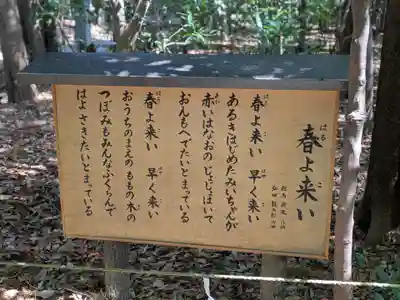 春よ来い
相馬 御風 作詞
弘田 龍太郎 作曲
春よ来い 早く来い
あるきはじめたみいちゃんが
赤いはなおの じょじょはいて
おんもへでたいとまっている
春よ来い 早く来い
おうちのまえの ももの木の
つぼみもみんなふくらんで
はよ さきたいとまっている